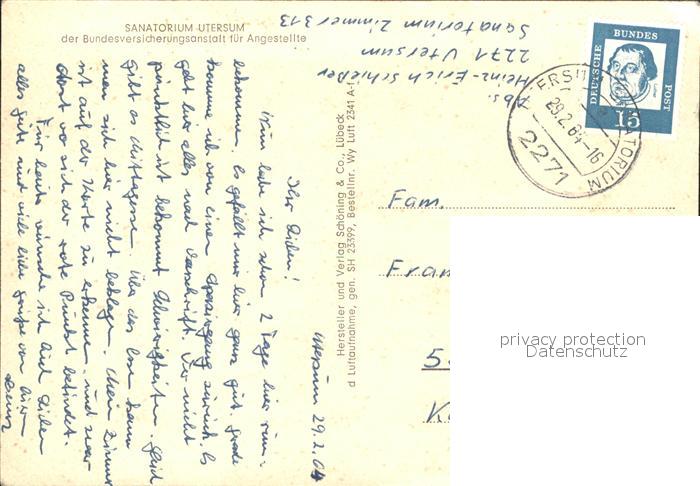 SANATORIUM UTERSUM
der Bundesversicherungsanstalt für Angestellte
Abs.
Heinz-Erich Schießer
2271 Utersum
Sanatorium Zimmer 313
DEUTSCHE BUNDES POST
15
UTERSUM SANATORIUM
29.2.64-16
2271
Utersum 29.2.64
Ihr Lieben!
Nun habe ich schon 2 Tage hier rum-
bekommen. Es gefällt mir hier ganz gut. Grade
komme ich von einem Spaziergang zurück. Es
geht hier alles nach Vorschrift. Wer nicht
pünktlich ist bekommt Schwierigkeiten. Gleich
gibt es Mittagessen. Über das Essen kann
man sich hier nicht beklagen. Mein Zimmer
ist auf der Karte zu erkennen und zwar
dort wo sich der rote Punkt befindet.
Für heute wünsche ich Euch Lieben
alles gute und viele liebe grüße von Eurem
Heinz
Hersteller und Verlag Schöning & Co., Lübeck
d Luftaufnahme, gen. SH 23399, Bestellnr. Wy Luft 2341 A
Fam.
Fran
5
K
privacy protection
Datenschutz